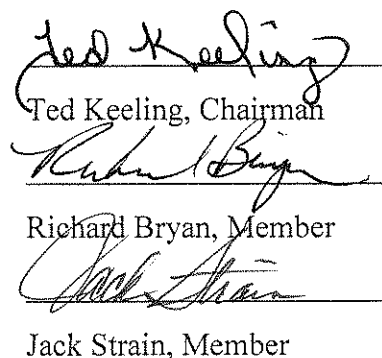 Ted Keeling
Ted Keeling, Chairman
Richard Bryan
Richard Bryan, Member
Jack Strain
Jack Strain, Member